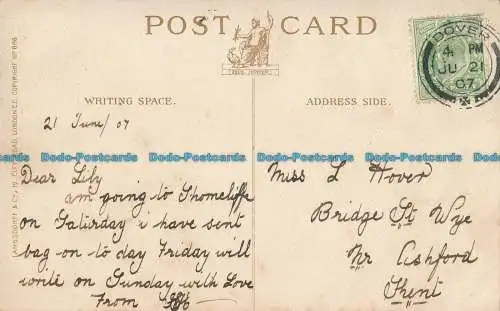 POST CARD
DOVER
4 PM
JU 21
07
WRITING SPACE.
ADDRESS SIDE.
21 June/07
Dear Lily
am going to Shorncliffe
on Saturday i have sent
bag on to day Friday will
write on Sunday with Love
From
Miss L Hover
Bridge St Wye
Nr Ashford
Kent
Dodo-Postcards Dodo-Postcards Dodo-Postcards Dodo-Postcards Dodo-Postcards Dodo-Postcards